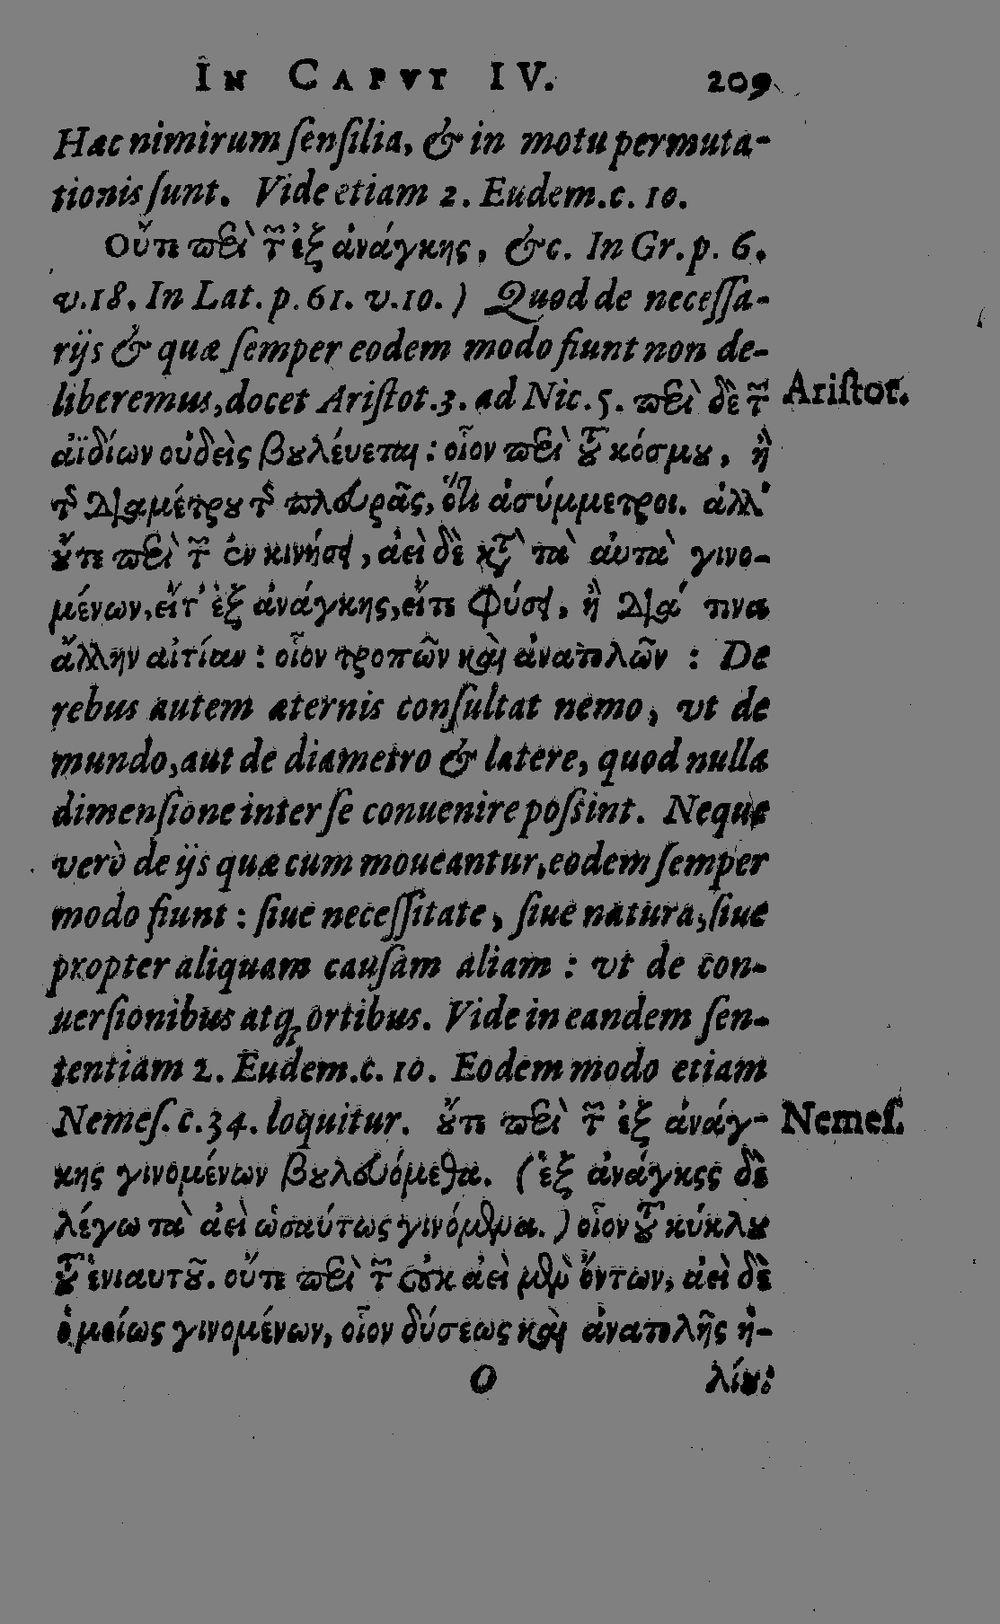 IN CAPVT IV. 209
Hac nimirum ſenſilia, & in motu permuta-
tionis ſunt. Vide etiam 2. Eudem.c. 10.
Οὔτε περὶ τῶν ἐξ ἀνάγκης, &c. In Gr. p. 6.
v.18. In Lat. p. 61. v.10. ) Quod de neceſſa-
rijs & quæ ſemper eodem modo fiunt non de-
liberemus, docet Ariſtot.3. ad Nic.5. περὶ δὲ τῶν
Ariſtot.
ἀϊδίων οὐδεὶς βουλεύεται : οἷον περὶ τοῦ κόσμου, ἢ
τῆς διαμέτρου τῆς πλευρᾶς, ὅτι ἀσύμμετροι. ἀλλ'
οὔτε περὶ τῶν ἐν κινήσει, ἀεὶ δὲ κατὰ τὰ αὐτὰ γινο-
μένων, εἴτ' ἐξ ἀνάγκης, εἴτε φύσει, ἢ διά τινα
ἄλλην αἰτίαν : οἷον τροπῶν καὶ ἀνατολῶν : De
rebus autem æternis conſultat nemo, vt de
mundo, aut de diametro & latere, quod nulla
dimenſione inter ſe conuenire poſsint. Neque
verò de ijs quæ cum moueantur, eodem ſemper
modo fiunt : ſiue neceſſitate, ſiue natura, ſiue
propter aliquam cauſam aliam : vt de con-
uerſionibus atq; ortibus. Vide in eandem ſen-
tentiam 2. Eudem.c. 10. Eodem modo etiam
Nemeſ. c.34. loquitur. οὔτε περὶ τῶν ἐξ ἀνάγ-
Nemeſ.
κης γινομένων βουλευόμεθα. (ἐξ ἀνάγκης δὲ
λέγω τὰ ἀεὶ ὡσαύτως γινόμενα. ) οἷον τοῦ κύκλου
τοῦ ἐνιαυτοῦ. οὔτε περὶ τῶν οὐκ ἀεὶ μὲν ὄντων, ἀεὶ δὲ
ὁμοίως γινομένων, οἷον δύσεως καὶ ἀνατολῆς ἡ-
O λίου: